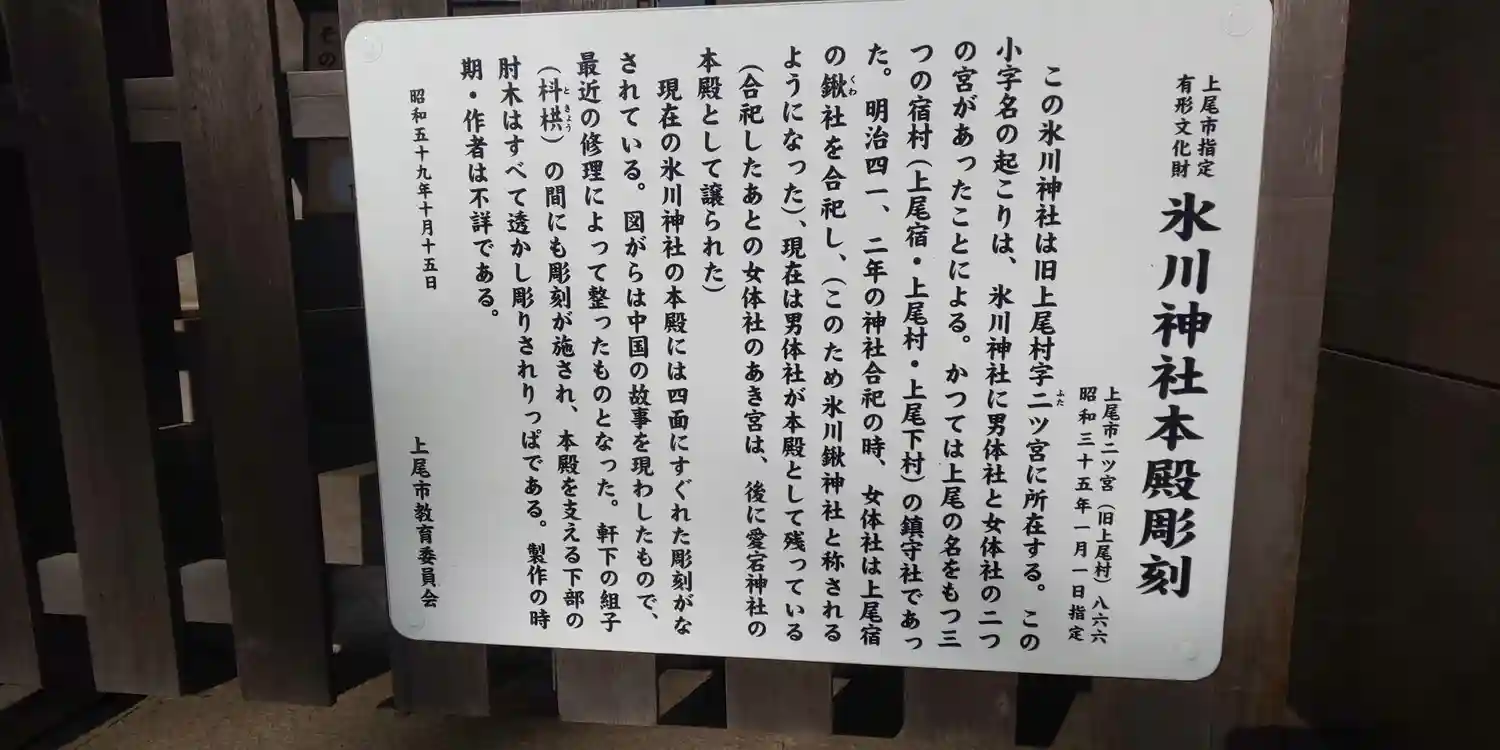 上尾市指定
有形文化財
氷川神社本殿彫刻
上尾市二ツ宮(旧上尾村)八六六
昭和三十五年一月一日指定
この氷川神社は旧上尾村字二ツ宮に所在する。この
ふた
小字名の起こりは、氷川神社に男体社と女体社の二つ
の宮があったことによる。かつては上尾の名をもつ三
つの宿村(上尾宿・上尾村・上尾下村)の鎮守社であっ
た。明治四一、二年の神社合祀の時、女体社は上尾宿
の鍬社を合祀し、(このため氷川鍬神社と称される
くわ
ようになった)、現在は男体社が本殿として残っている
(合祀したあとの女体社のあき宮は、後に愛宕神社の
本殿として譲られた)
現在の氷川神社の本殿には四面にすぐれた彫刻がな
されている。図がらは中国の故事を現わしたもので、
最近の修理によって整ったものとなった。軒下の組子
(枓栱)の間にも彫刻が施され、本殿を支える下部の
ときょう
肘木はすべて透かし彫りされりっぱである。製作の時
期・作者は不詳である。
昭和五十九年十月十五日
上尾市教育委員会
その